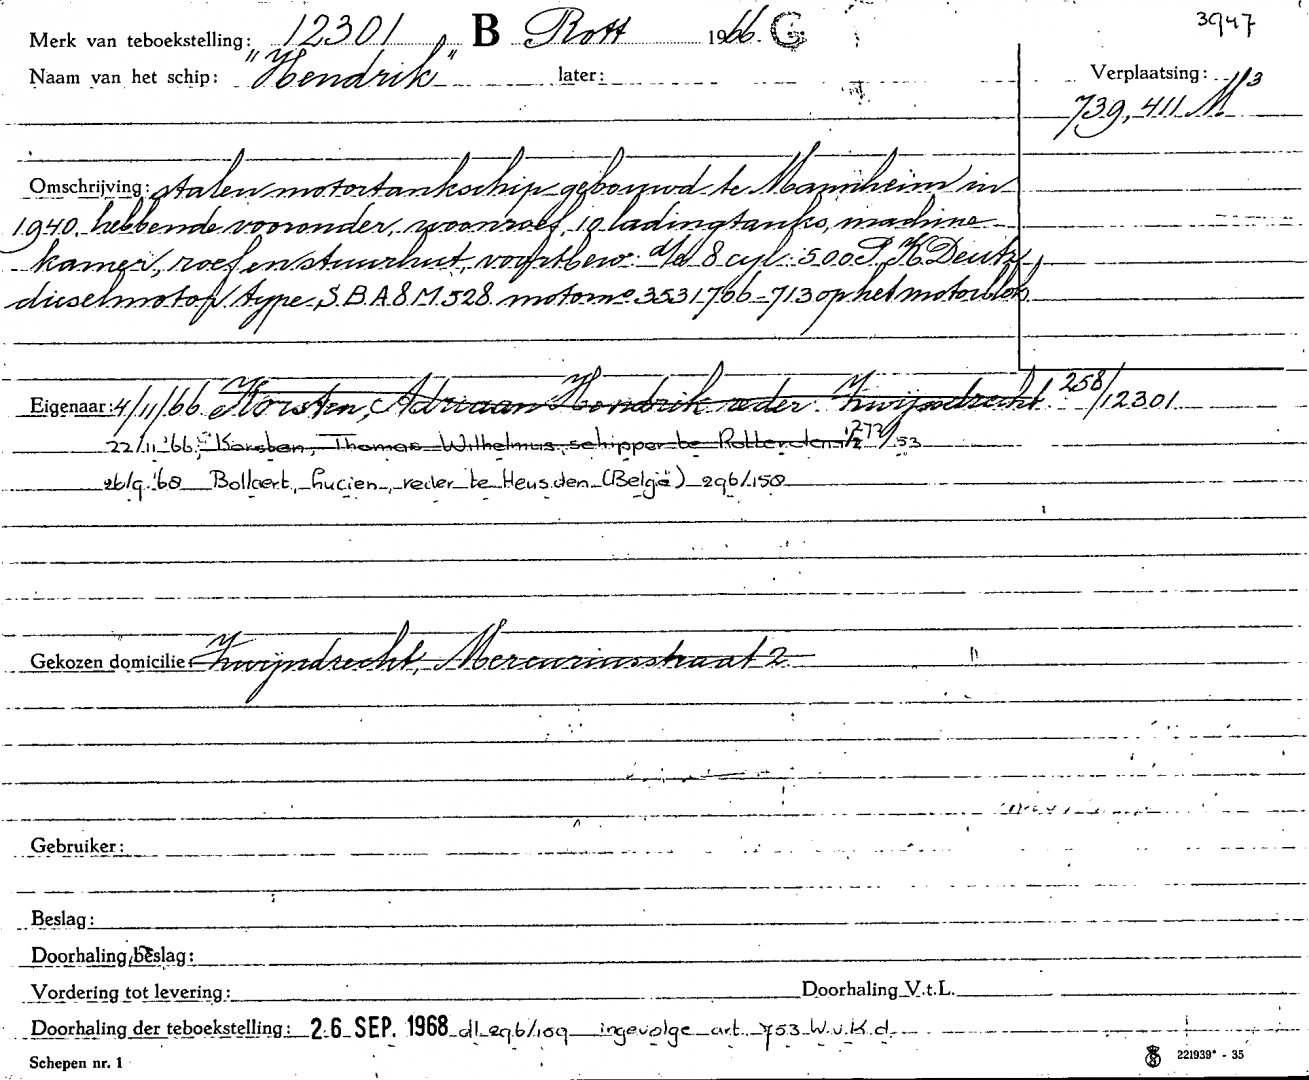 3947
Merk van teboekstelling: 12301 B Rott 1966 G
Naam van het schip: "Hendrik" later:
Verplaatsing: M3
739,411
Omschrijving: stalen motortankschip gebouwd te Mannheim in
1940. hebbende vooronder, woonroef, 10 ladingtanks, machine
kamer, roef en stuurhut, voortbew: d/e 8 cyl: 500 P.K Deutz
dieselmotor type, S.B.A 8 M 528 motorno 3531706-713 op het motorblok
Eigenaar: 4/11/66 Korsten, Adriaan Hendrik reder Zwijndrecht 258/12301
22/11 '66: Korsten, Thomas Wilhelmus, schipper te Rotterdam 1/2 272/53
26/9 '68 Bollaert, Lucien, reder te Heusden (België) 296/158
Gekozen domicilie: Zwijndrecht, Mercuriusstraat 2
Gebruiker:
Beslag:
Doorhaling beslag:
Vordering tot levering: Doorhaling V.t.L.
Doorhaling der teboekstelling: 26 SEP. 1968 dl 296/159 ingevolge art. 753 W.v.K.d.
Schepen nr. 1 221939* - 35